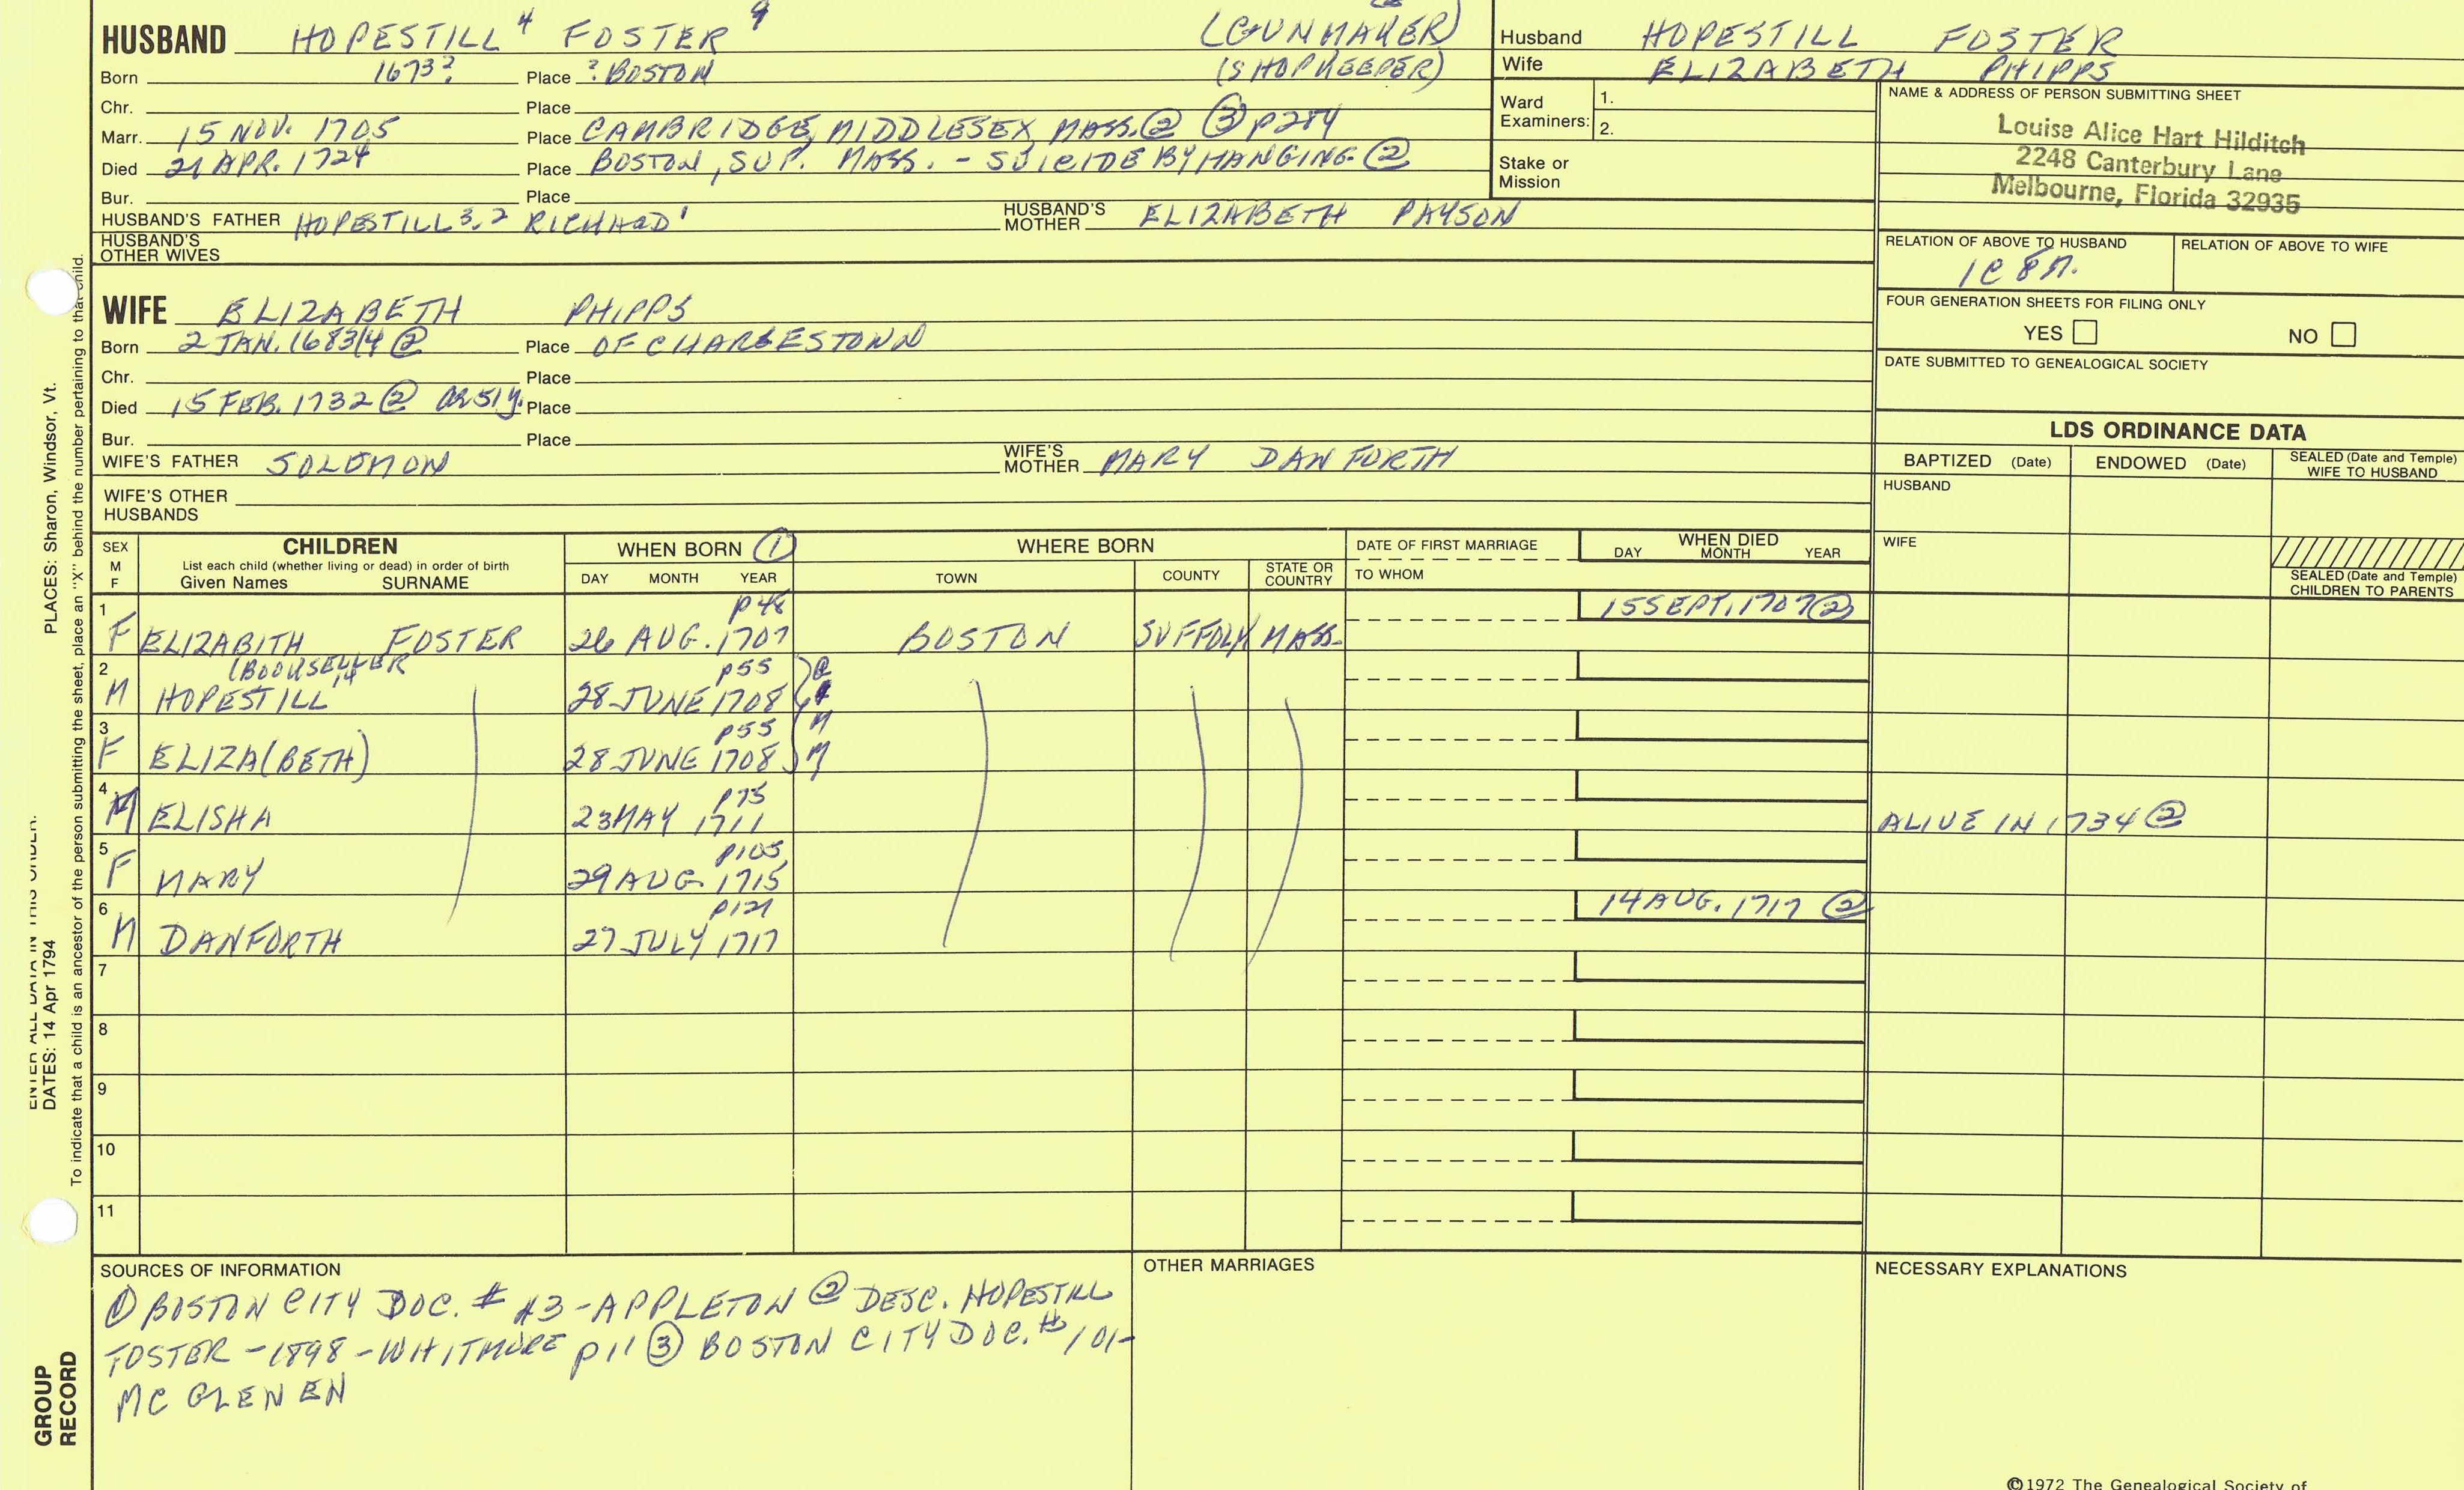 HUSBAND HOPESTILL 4 FOSTER 9 (GUNMAKER)
Born 1673? Place ? BOSTON (SHOPKEEPER)
Chr. Place
Marr. 15 NOV. 1705 Place CAMBRIDGE, MIDDLESEX, MASS. ② ③ p284
Died 21 APR. 1724 Place BOSTON, SUF. MASS. - SUICIDE BY HANGING ②
Bur. Place
HUSBAND'S FATHER HOPESTILL 3,2 RICHARD 1 HUSBAND'S MOTHER ELIZABETH PAYSON
HUSBAND'S OTHER WIVES
Husband HOPESTILL FOSTER
Wife ELIZABETH PHIPPS
Ward Examiners: 1.
2.
Stake or Mission
NAME & ADDRESS OF PERSON SUBMITTING SHEET
Louise Alice Hart Hilditch
2248 Canterbury Lane
Melbourne, Florida 32935
RELATION OF ABOVE TO HUSBAND RELATION OF ABOVE TO WIFE
1C 8R.
FOUR GENERATION SHEETS FOR FILING ONLY
YES NO
DATE SUBMITTED TO GENEALOGICAL SOCIETY
WIFE ELIZABETH PHIPPS
Born 2 JAN. 1683/4 ② Place OF CHARLESTOWN
Chr. Place
Died 15 FEB. 1732 ② AE 51 y. Place
Bur. Place
WIFE'S FATHER SOLOMON WIFE'S MOTHER MARY DANFORTH
WIFE'S OTHER HUSBANDS
LDS ORDINANCE DATA
BAPTIZED (Date) ENDOWED (Date) SEALED (Date and Temple) WIFE TO HUSBAND
HUSBAND
WIFE
SEALED (Date and Temple) CHILDREN TO PARENTS
SEX M F CHILDREN List each child (whether living or dead) in order of birth Given Names SURNAME
WHEN BORN ① DAY MONTH YEAR
WHERE BORN TOWN COUNTY STATE OR COUNTRY
DATE OF FIRST MARRIAGE TO WHOM
WHEN DIED DAY MONTH YEAR
1 p48 15 SEPT. 1707 ②
F ELIZABITH FOSTER 26 AUG. 1707 BOSTON SUFFOLK MASS.
2 (BOOKSELLER p55
M HOPESTILL 28 JUNE 1708
3 p55
F ELIZA(BETH) 28 JUNE 1708
4 p75
M ELISHA 23 MAY 1711 ALIVE IN 1734 ②
5 p105
F MARY 29 AUG. 1715
6 p121 14 AUG. 1717 ②
M DANFORTH 27 JULY 1717
7
8
9
10
11
SOURCES OF INFORMATION
① BOSTON CITY DOC. # 43 - APPLETON ② DESC. HOPESTILL
FOSTER - 1898 - WHITMORE p11 ③ BOSTON CITY DOC. # 101-
MC GLENEN
OTHER MARRIAGES
NECESSARY EXPLANATIONS
©1972 The Genealogical Society of
PLACES: Sharon, Windsor, Vt.
ENTER ALL DATA IN THIS ORDER:
DATES: 14 Apr 1794
To indicate that a child is an ancestor of the person submitting the sheet, place an "X" behind the number pertaining to that child.
GROUP RECORD